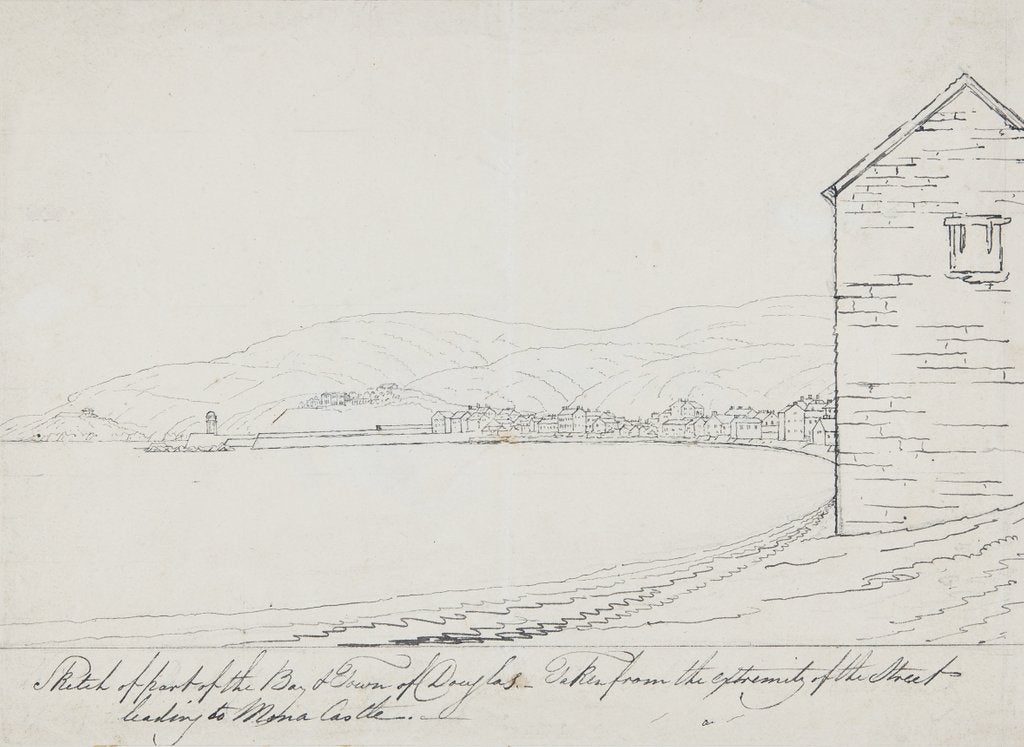 Sketch of part of the Bay & Town of Douglas. – Taken from the extremity of the Street
leading to Mona Castle. –